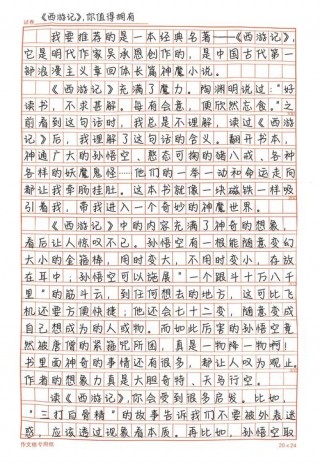 《西游记》,你值得拥有
我要推荐的是一本经典名著——《西游记》,
它是明代作家吴承恩创作的,是中国古代第一
部浪漫主义章回体长篇神魔小说。
《西游记》充满了魔力。陶渊明说过:“好
读书,不求甚解。每有会意,便欣然忘食。”之
前看到这句话时,我总是不理解,读过《西游
记》后,我理解了这句话的含义。翻开书本,
神通广大的孙悟空、憨态可掬的猪八戒、各种
各样的妖魔鬼怪……他们的一举一动和命运走向
都让我牵肠挂肚。这本书就像一块磁铁一样吸
引着我,带我进入一个奇妙的神魔世界。
《西游记》中的内容充满了神奇的想象,
看后让人惊叹不已。孙悟空有一根能随意变幻
大小的金箍棒,用时变大,不用时变小,存放
在耳中;孙悟空可以施展“一个跟斗十万八千
里”的筋斗云,到任何想去的地方,这可比飞
机还要方便快捷;他还会七十二变,随意变成
自己想成为的人或物。而如此厉害的孙悟空竟
然被唐僧的紧箍咒所困,真是一物降一物啊!
书里面神奇的事情还有很多,都让人叹为观止。
作者的想象力真是大胆奇特、天马行空。
读《西游记》,你会受到很多启发。比如,
“三打白骨精”的故事告诉我们不要被外表迷
惑,应该透过现象看本质。再比如,孙悟空取
作文纸专用纸
20×24